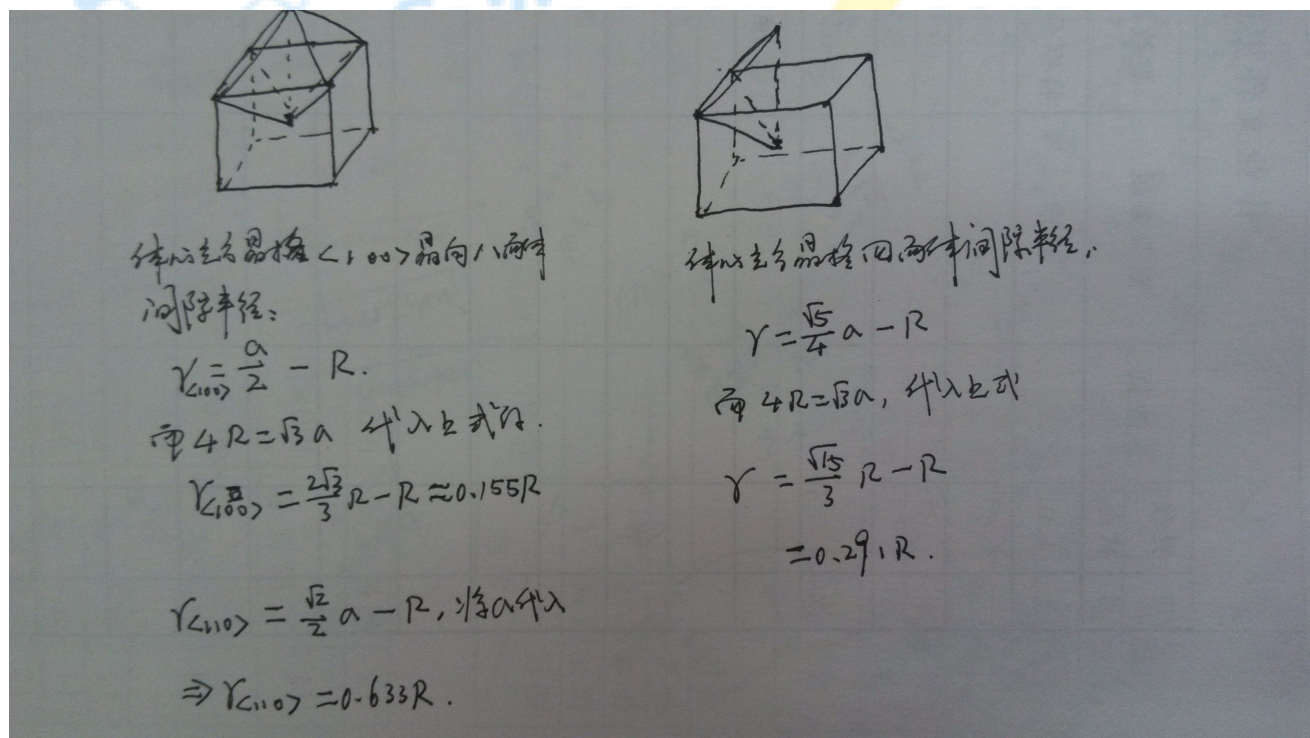 体心立方晶格<100>晶向八面体
间隙半径:
r<100> = a/2 - R.
而 4R=√3a 代入上式得.
r<100> = 2√3/3 R - R ≈0.155R
r<110> = √2/2 a - R, 将a代入
⇒ r<110> =0.633R.
体心立方晶格四面体间隙半径,
r = √5/4 a - R
而 4R=√3a, 代入上式
r = √15/3 R - R
=0.291R.